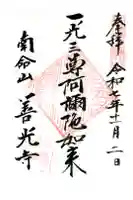 奉拝
令和七年十一月二日
一光三尊阿彌陀如来
南命山
善光寺